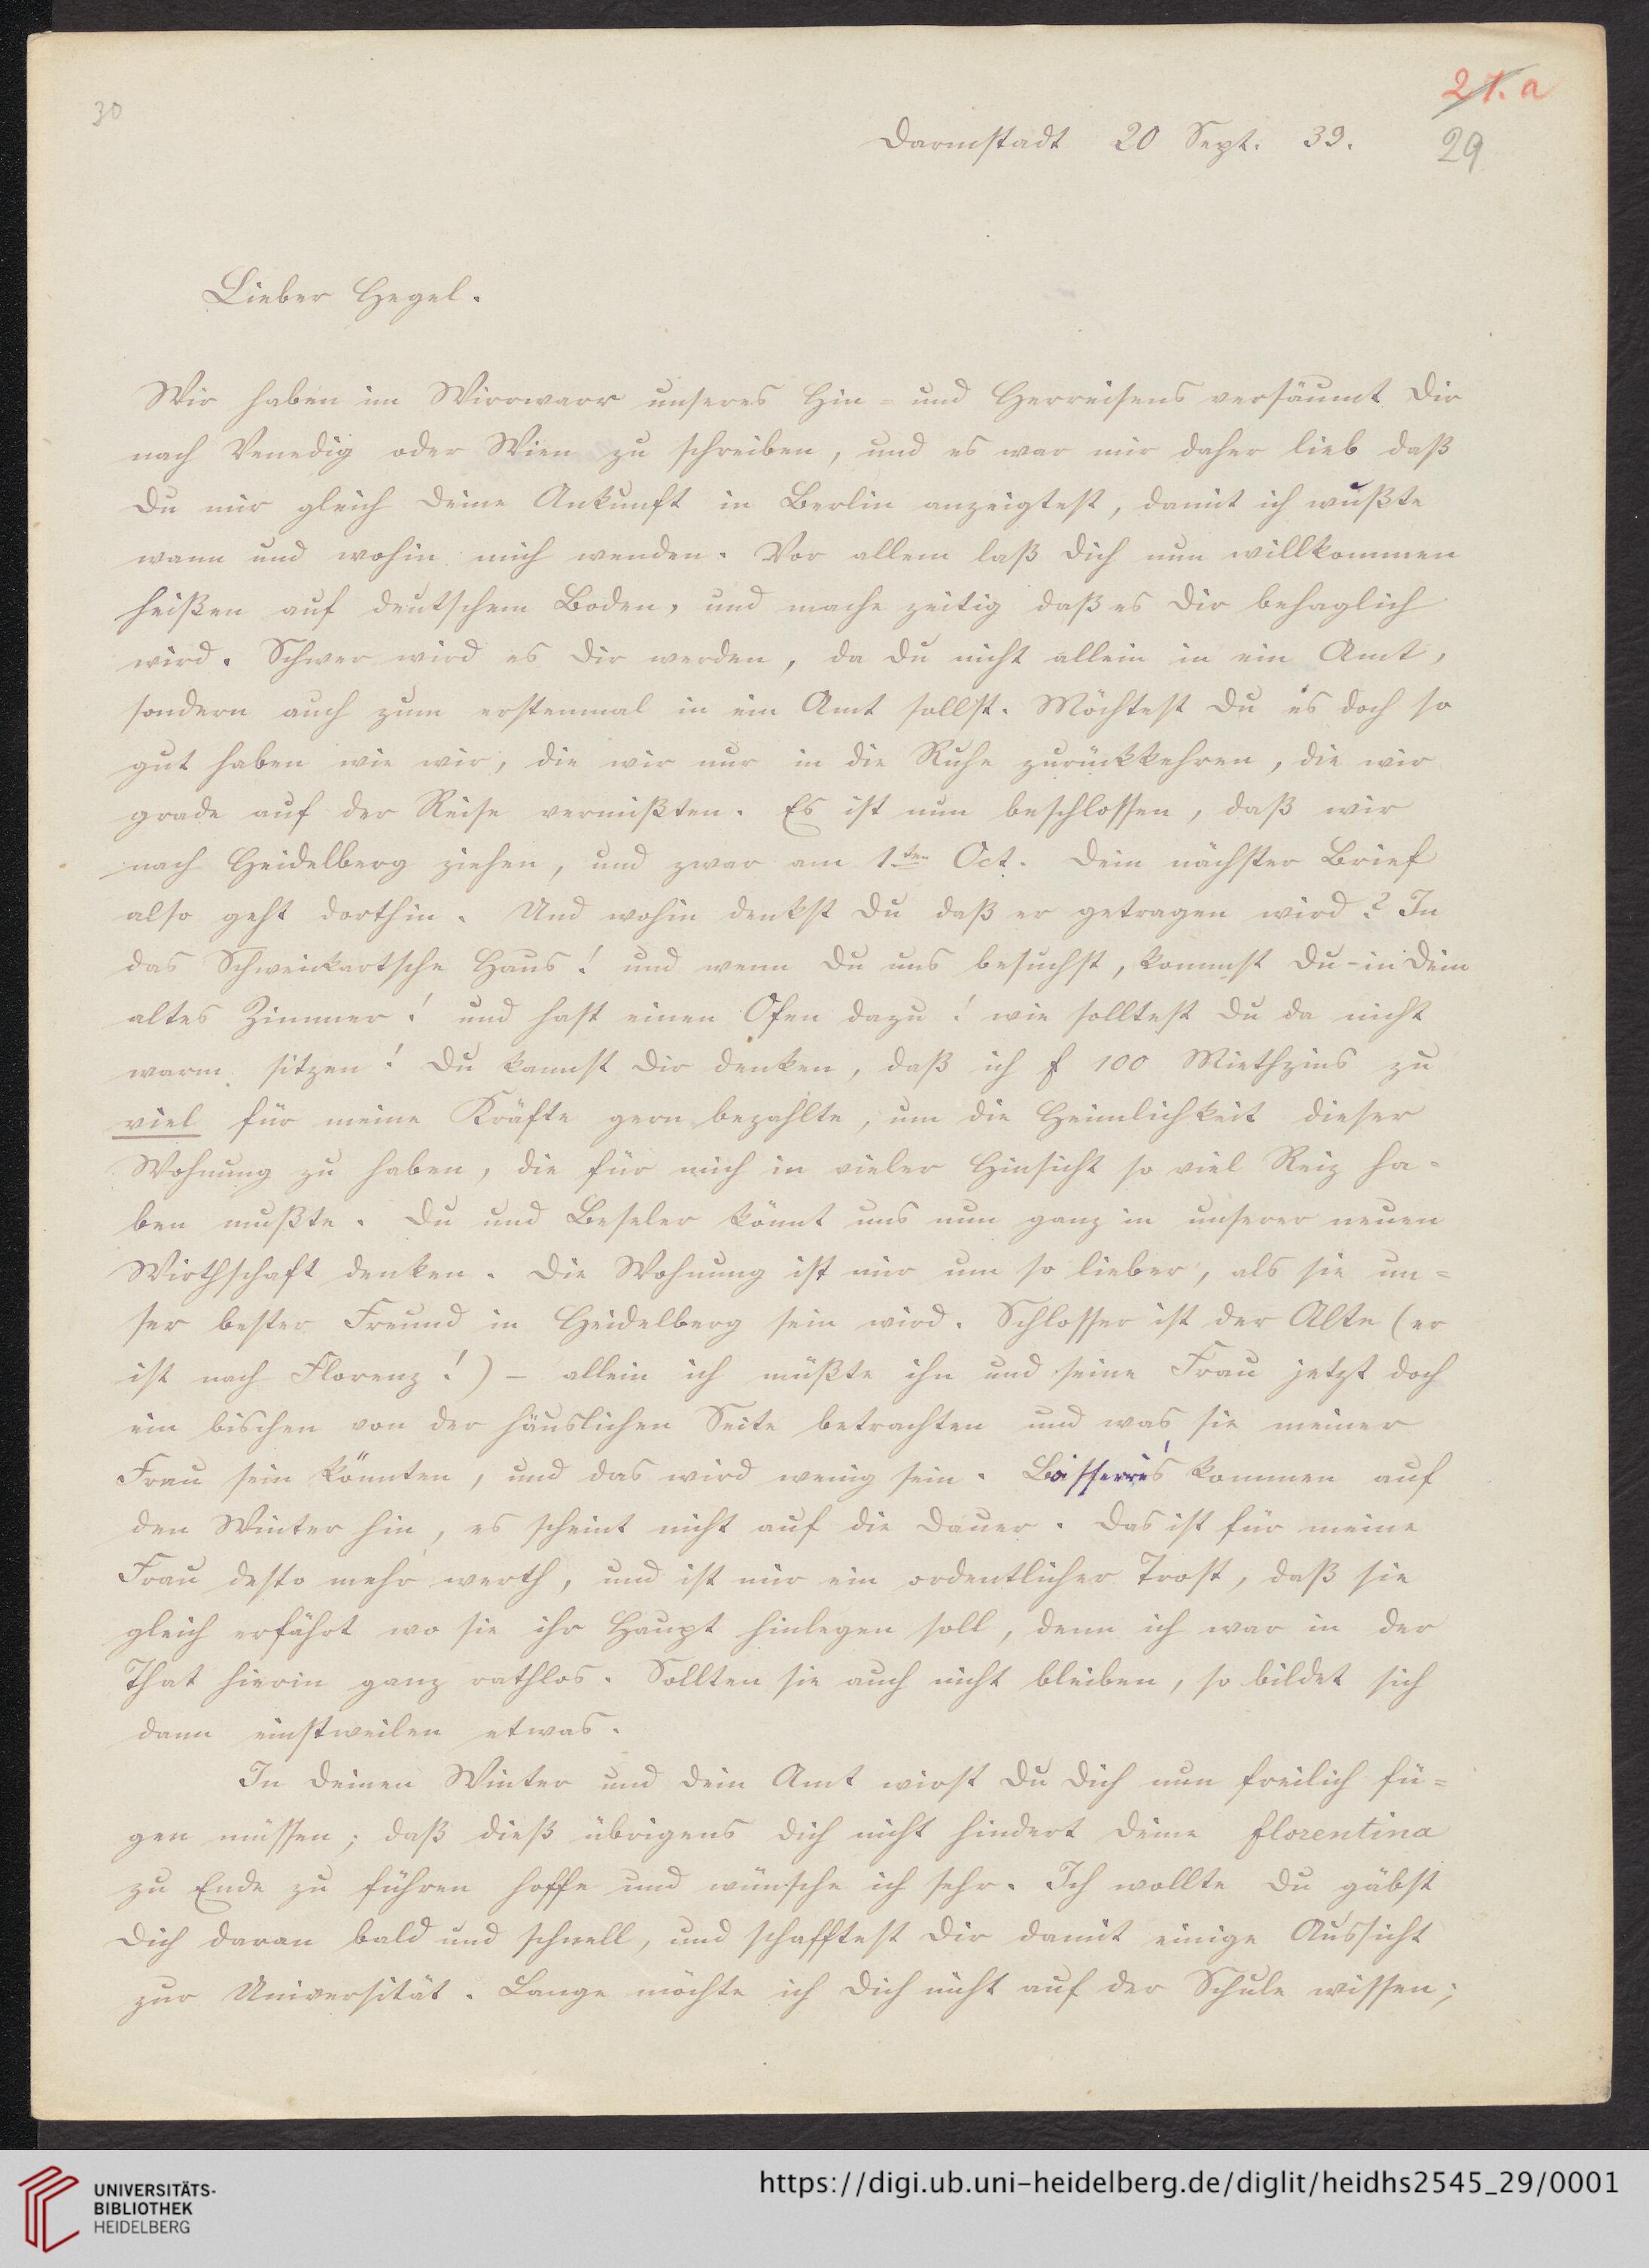 30
21. a
29
Darmstadt 20 Sept. 39.
Lieber Hegel.
Wir haben im Wirrwarr unseres Hin- und Herreisens versäumt Dir
nach Venedig oder Wien zu schreiben, und es war mir daher lieb daß
Du mir gleich Deine Ankunft in Berlin anzeigtest, damit ich wußte
wann und wohin mich wenden. Vor allem laß Dich nun willkommen
heißen auf deutschem Boden, und mache zeitig daß es Dir behaglich
wird. Schwer wird es Dir werden, da Du nicht allein in ein Amt,
sondern auch zum erstenmal in ein Amt sollst. Möchtest Du es doch so
gut haben wie wir, die wir nur in die Ruhe zurückkehren, die wir
grade auf der Reise vermißten. Es ist nun beschlossen, daß wir
nach Heidelberg ziehen, und zwar am 1ten Oct. Dein nächster Brief
also geht dorthin. Und wohin denkst Du daß er getragen wird? In
das Schweickartsche Haus! und wenn Du uns besuchst, kommst Du-in Dein
altes Zimmer! und hast einen Ofen dazu! wie solltest Du da nicht
warm sitzen! Du kannst Dir denken, daß ich f 100 Miethzins zu
viel für meine Kräfte gern bezahlte, um die Heimlichkeit dieser
Wohnung zu haben, die für mich in vieler Hinsicht so viel Reiz ha-
ben mußte. Du und Beseler könnt uns nun ganz in unserer neuen
Wirthschaft denken. Die Wohnung ist mir um so lieber, als sie un-
ser bester Freund in Heidelberg sein wird. Schlosser ist der Alte (er
ist nach Florenz!) – allein ich müßte ihn und seine Frau jetzt doch
ein bischen von der häuslichen Seite betrachten und was sie meiner
Frau sein könnten, und das wird wenig sein. Boisserée's kommen auf
den Winter hin, es scheint nicht auf die Dauer. Das ist für meine
Frau desto mehr werth, und ist mir ein ordentlicher Trost, daß sie
gleich erfährt wo sie ihr Haupt hinlegen soll, denn ich war in der
That hierin ganz rathlos. Sollten sie auch nicht bleiben, so bildet sich
dann einstweilen etwas.
In Deinen Winter und Dein Amt wirst Du Dich nun freilich fü-
gen müssen; daß dieß übrigens Dich nicht hindert Deine florentina
zu Ende zu führen hoffe und wünsche ich sehr. Ich wollte Du gäbst
Dich daran bald und schnell, und schafftest Dir damit einige Aussicht
zur Universität. Lange möchte ich Dich nicht auf der Schule wissen;
UNIVERSITÄTS-
BIBLIOTHEK
HEIDELBERG
https://digi.ub.uni-heidelberg.de/diglit/heidhs2545_29/0001